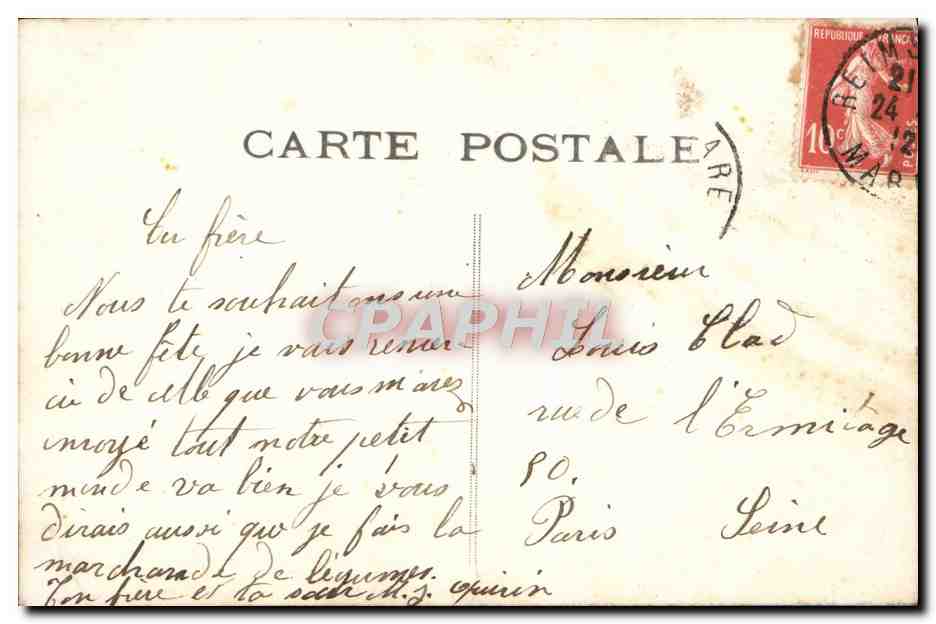 REPUBLIQUE FRANCAI
10c
POSTES
REIMS
21
24
12
MAR
ARE
CARTE POSTALE
frère
Nous te souhaitons une
bonne fête, je vous remer
cie de celle que vous m'avez
envoyé tout notre petit
monde va bien je vous
dirais aussi que je fais la
marchande de légumes.
Ton frère et ta sœur M. J. Quirin
Monsieur
Louis Clad
rue de l'Ermitage
50.
Paris Seine
CPAPHIL